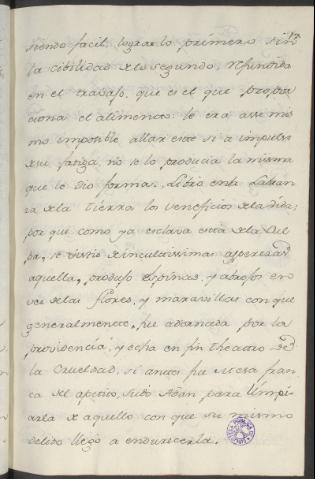 17
siendo facil lograrlo primero sin
la cibilidad xlo segundo, Nfundido
en el trabajo, que es el que propor
ciona el alimento: le era assi mis
mo imposible allar este si a impulso
xsu fatiga no se lo producia la misma
que le dio forma. Libio en la Labran
za xla tierra los beneficios xla vida:
por que como ya esclava esta xla Cul
pa, se vistio xincultissimas asperezas
aquella, produjo espinas, y abrojos en
vez xlas flores, y maravillas con que
generalmente, fue adornada por la
providencia; y echa en fin theatro xe
la Crueldad, si antes fue mesa fran
ca xl apetito, sudò Adan para limpi
arla x aquello con que su mismo
delito llegò a endurecerla.